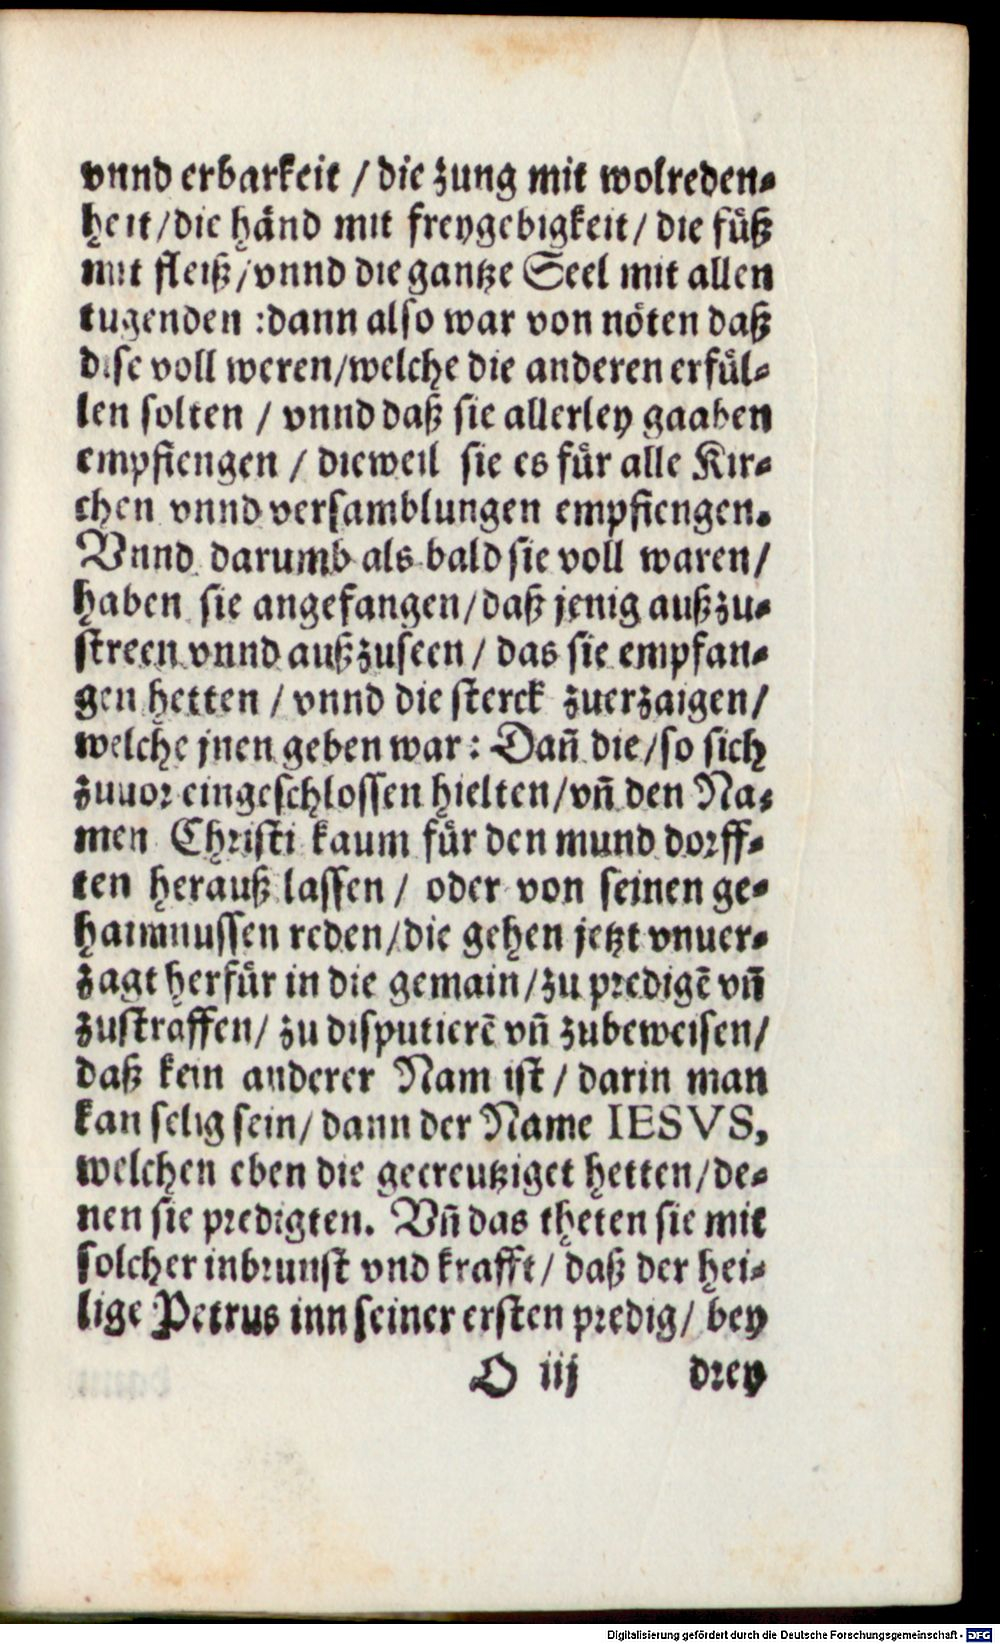 vnnd erbarkeit / die zung mit wolreden⸗
heit / die hånd mit freygebigkeit / die fůß
mit fleiß / vnnd die gantze Seel mit allen
tugenden : dann also war von nöten daß
dise voll weren / welche die anderen erfůl⸗
len solten / vnnd daß sie allerley gaaben
empfiengen / dieweil sie es für alle Kir⸗
chen vnnd versamblungen empfiengen.
Vnnd darumb als bald sie voll waren /
haben sie angefangen / daß jenig außzu⸗
streen vnnd außzuseen / das sie empfan⸗
gen hetten / vnnd die sterck zuerzaigen /
welche jnen geben war : Dañ die / so sich
zuuor eingeschlossen hielten / vñ den Na⸗
men Christi kaum für den mund dorff⸗
ten herauß lassen / oder von seinen ge⸗
haimnussen reden / die gehen jetzt vnuer⸗
zagt herfür in die gemain / zu predigē vñ
zustraffen / zu disputierē vñ zubeweisen /
daß kein anderer Nam ist / darin man
kan selig sein / dann der Name IESVS,
welchen eben die gecreutziget hetten / de⸗
nen sie predigten. Vñ das theten sie mit
solcher inbrunst vnd krafft / daß der hei⸗
lige Petrus inn seiner ersten predig / bey
O iij drey
Digitalisierung gefördert durch die Deutsche Forschungsgemeinschaft - DFG